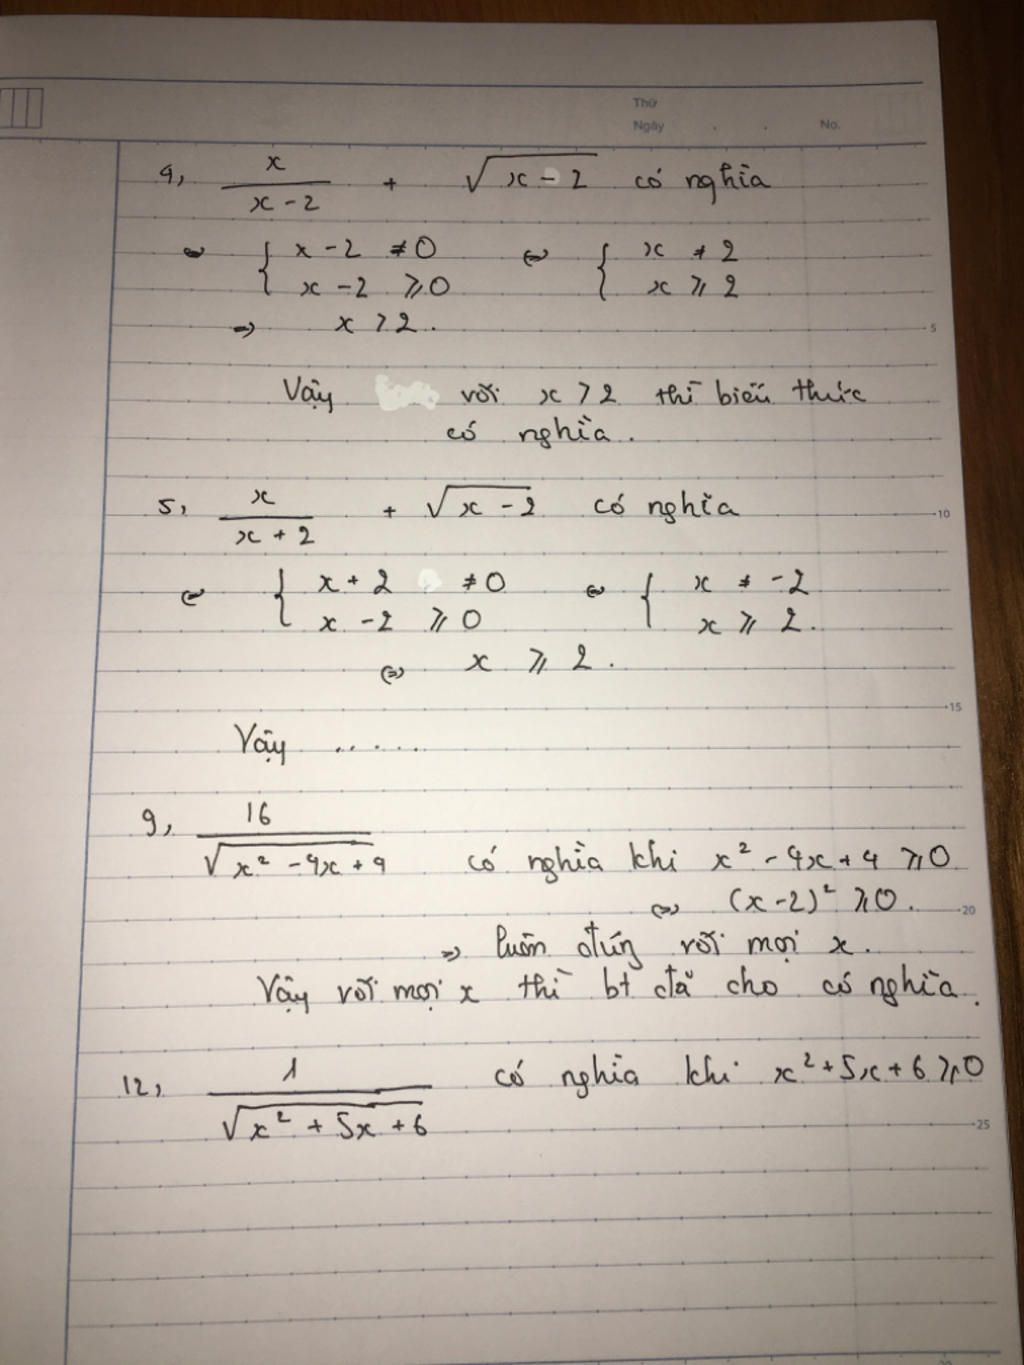 Thứ
Ngày . . No.
4, x/(x - 2) + √(x - 2) có nghĩa
⇔ { x - 2 ≠ 0 ⇔ { x ≠ 2
x - 2 ⩾ 0 x ⩾ 2
⇒ x > 2.
5
Vậy với x > 2 thì biểu thức
có nghĩa.
5, x/(x + 2) + √(x - 2) có nghĩa
10
⇔ { x + 2 ≠ 0 ⇔ { x ≠ -2
x - 2 ⩾ 0 x ⩾ 2.
⇔ x ⩾ 2.
15
Vậy ......
9, 16/√(x² - 4x + 4) có nghĩa khi x² - 4x + 4 ⩾ 0
⇔ (x - 2)² ⩾ 0.
20
⇒ luôn đúng với mọi x.
Vậy với mọi x thì bt đã cho có nghĩa.
12, 1/√(x² + 5x + 6) có nghĩa khi x² + 5x + 6 ⩾ 0
25